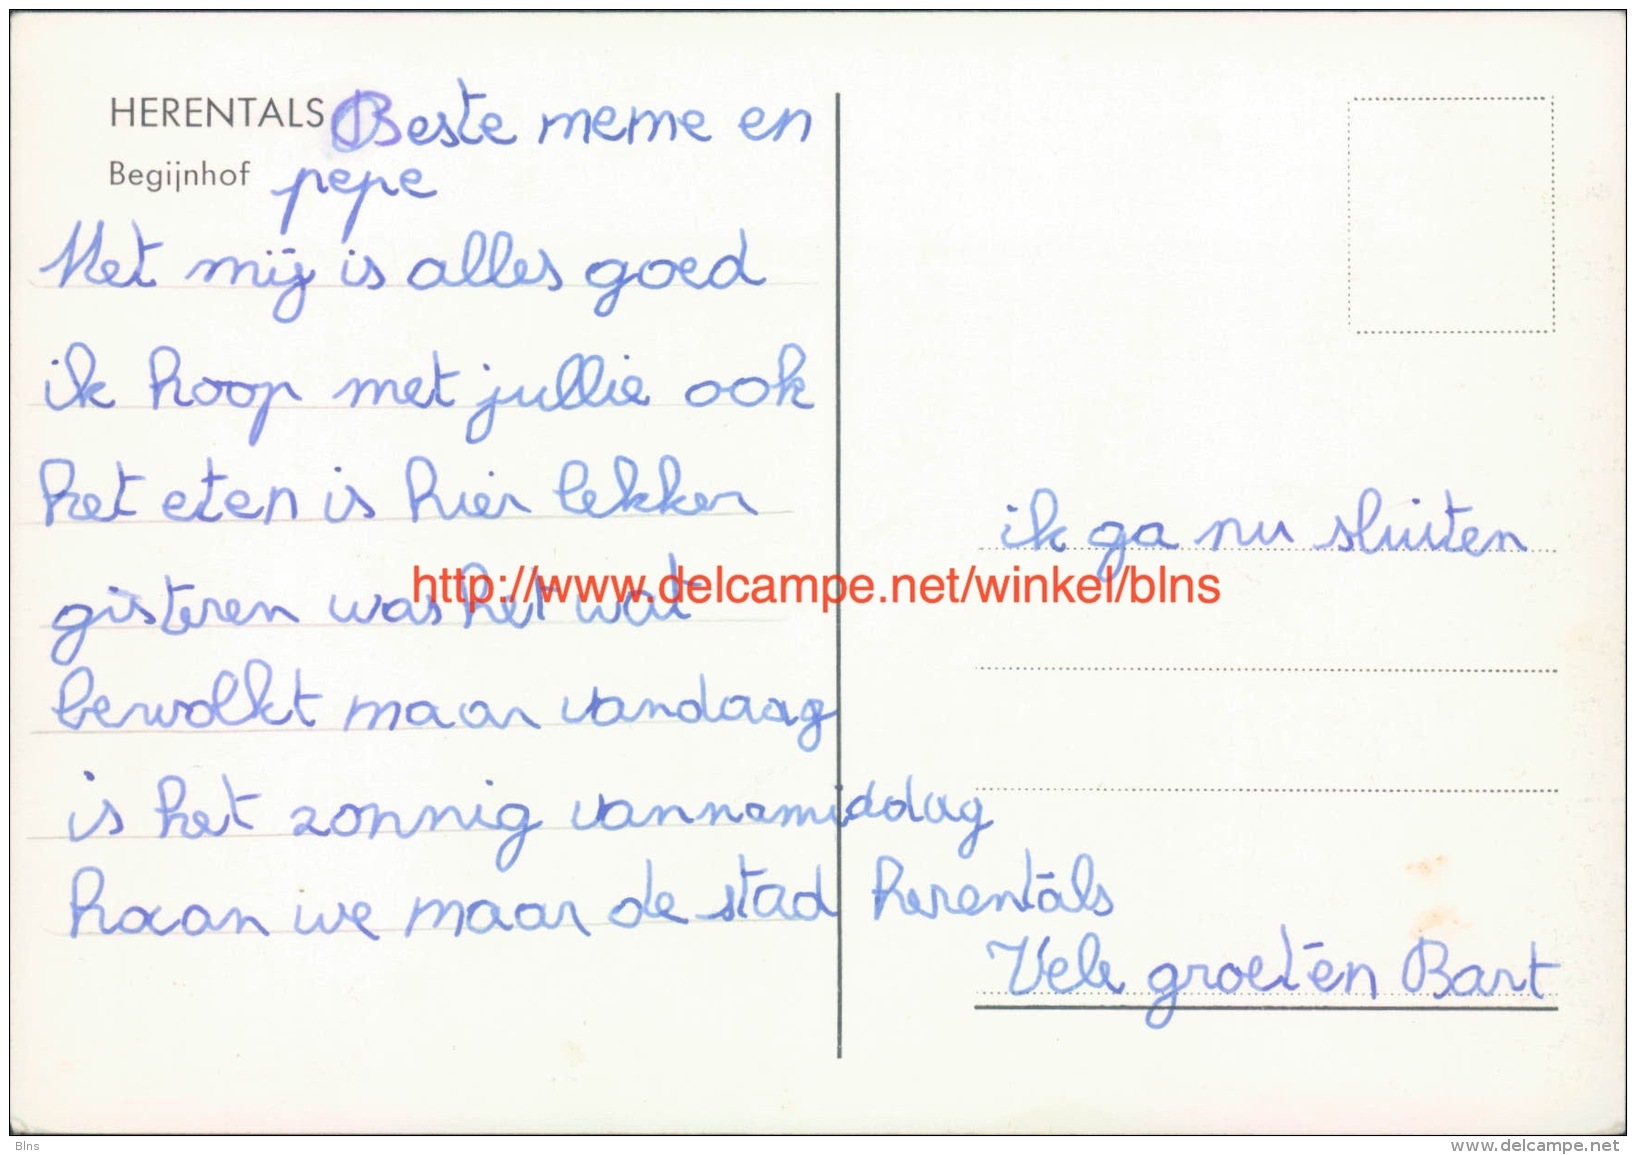 HERENTALS Beste meme en
Begijnhof pepe
Met mij is alles goed
ik hoop met jullie ook
het eten is hier lekker
gisteren was het wat
bewolkt maar vandaag
is het zonnig vannamiddag
haan we maar de stad herentals
ik ga nu sluiten
Vele groeten Bart
http://www.delcampe.net/winkel/blns
Blns
www.delcampe.net